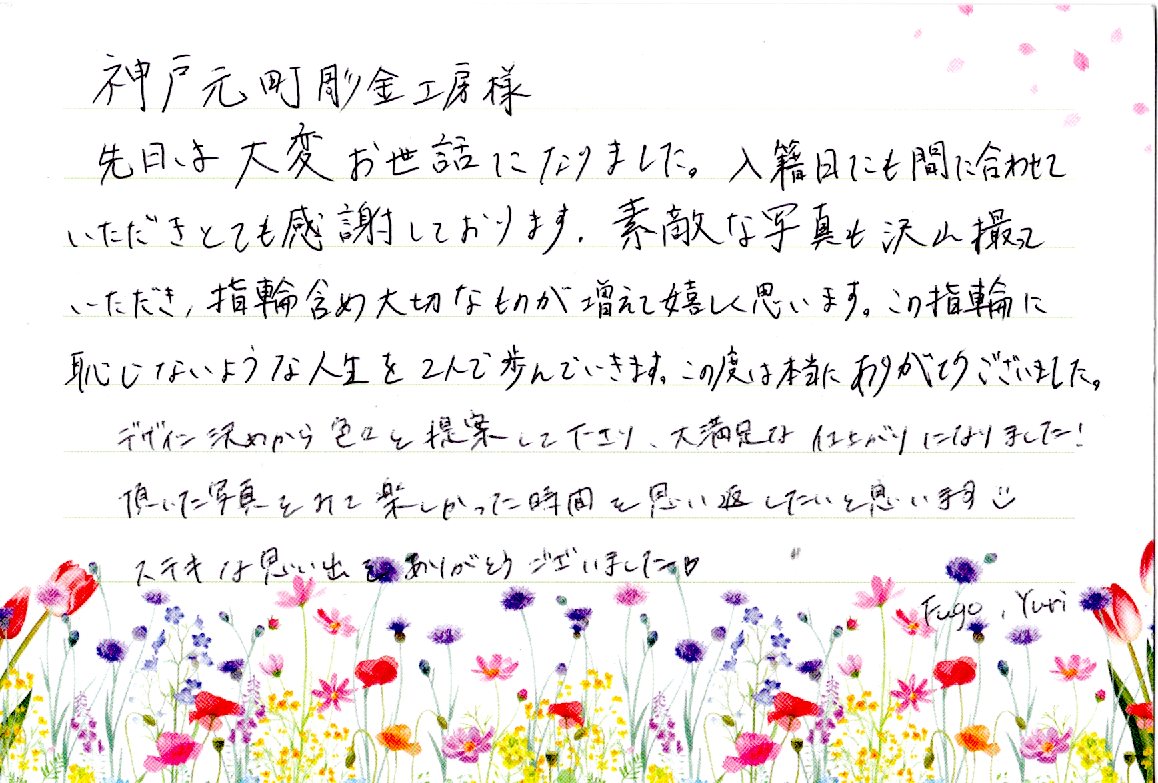 神戸元町彫金工房様
先日は大変お世話になりました。入籍日にも間に合わせて
いただきとても感謝しております。素敵な写真も沢山撮って
いただき、指輪含め大切なものが増えて嬉しく思います。この指輪に
恥じないような人生を2人で歩んでいきます。この度は本当にありがとうございました。
デザイン決めから色々と提案して下さり、大満足な仕上がりになりました!
頂いた写真をみて楽しかった時間を思い返したいと思います☺
ステキな思い出をありがとうございました♡
Fugo, Yuri